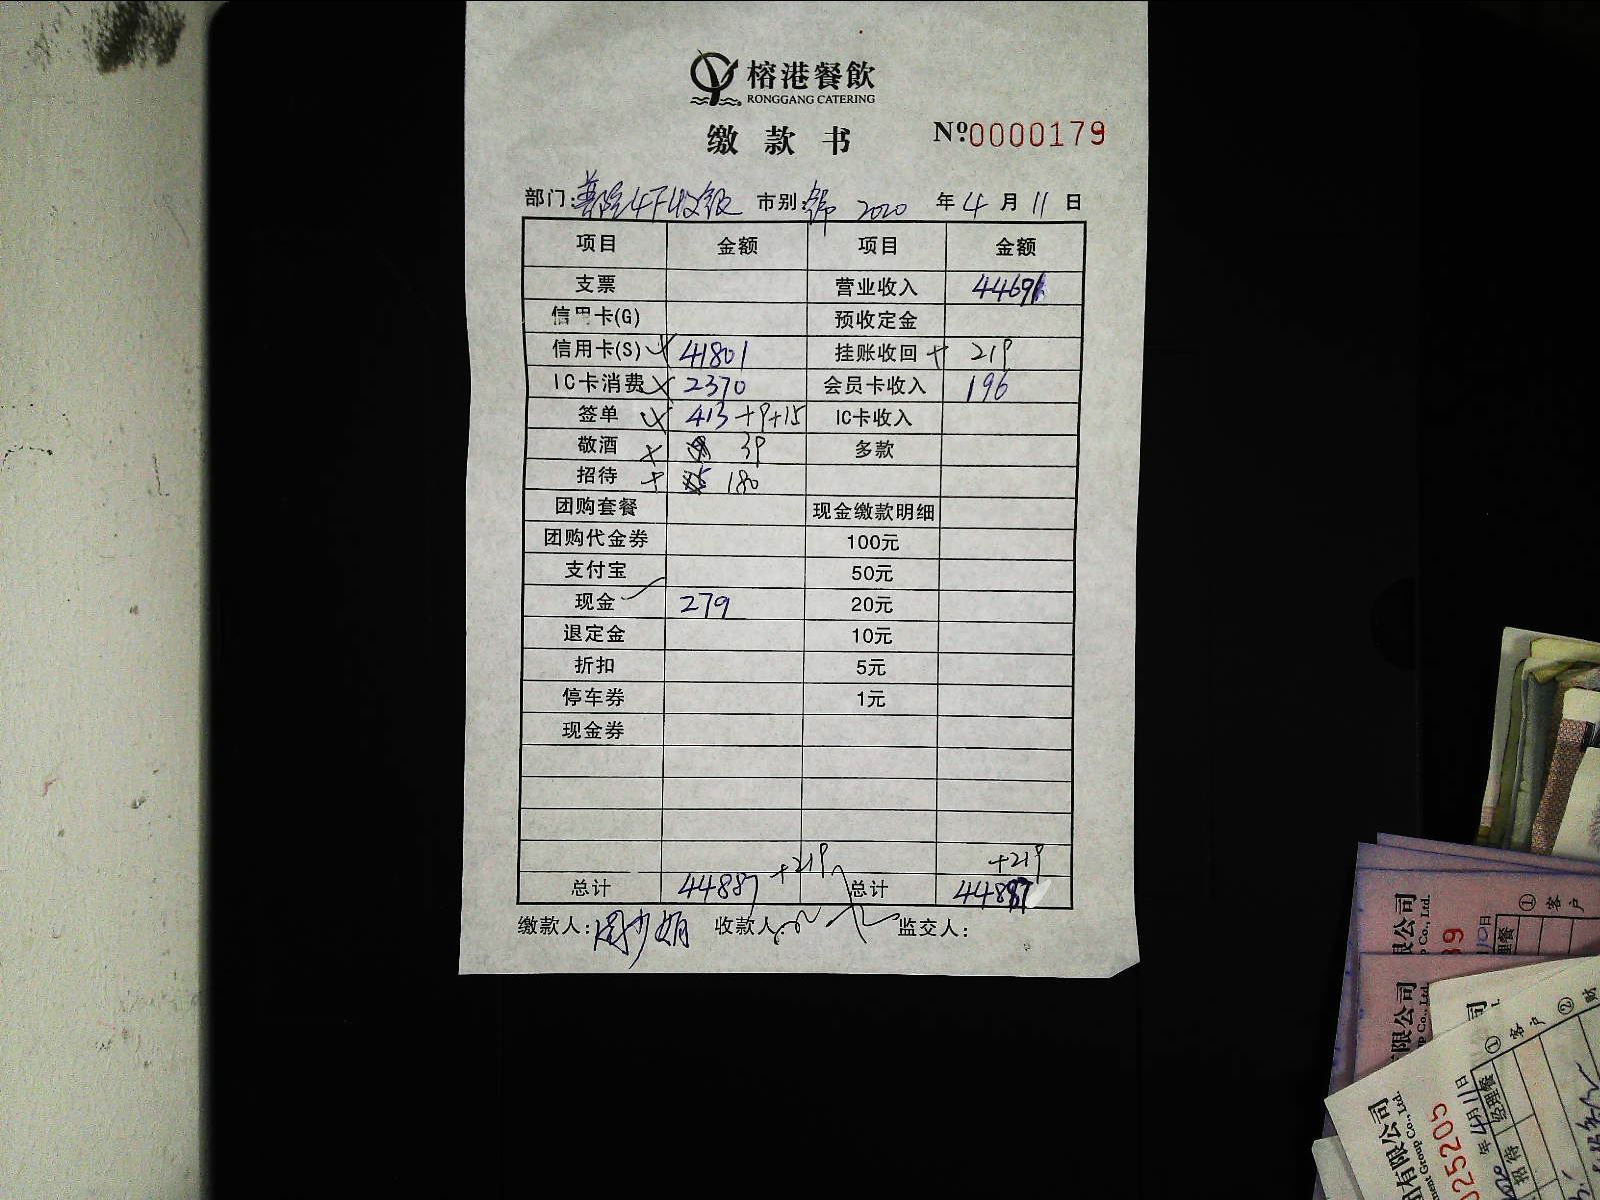 榕港餐飲
RONGGANG CATERING
缴款书 Nº 0000179
部门: 4F收银 市别: 2020 年 4 月 11 日
项目 金额 项目 金额
支票 营业收入 44691
信用卡(G) 预收定金
信用卡(S) 41801 挂账收回 + 219
IC卡消费 2370 会员卡收入 196
签单 413+9+15 IC卡收入
敬酒 39 多款
招待 180
团购套餐 现金缴款明细
团购代金券 100元
支付宝 50元
现金 279 20元
退定金 10元
折扣 5元
停车券 1元
现金券
+219
总计 44887 +219 总计 44887
缴款人: 周少娟 收款人 监交人:
限公司
Co., Ltd.
① 客户
限公司
Co., Ltd.
有限公司
ment Group Co., Ltd.
025205
年 4月11日
① 客户
②
经理餐
招待